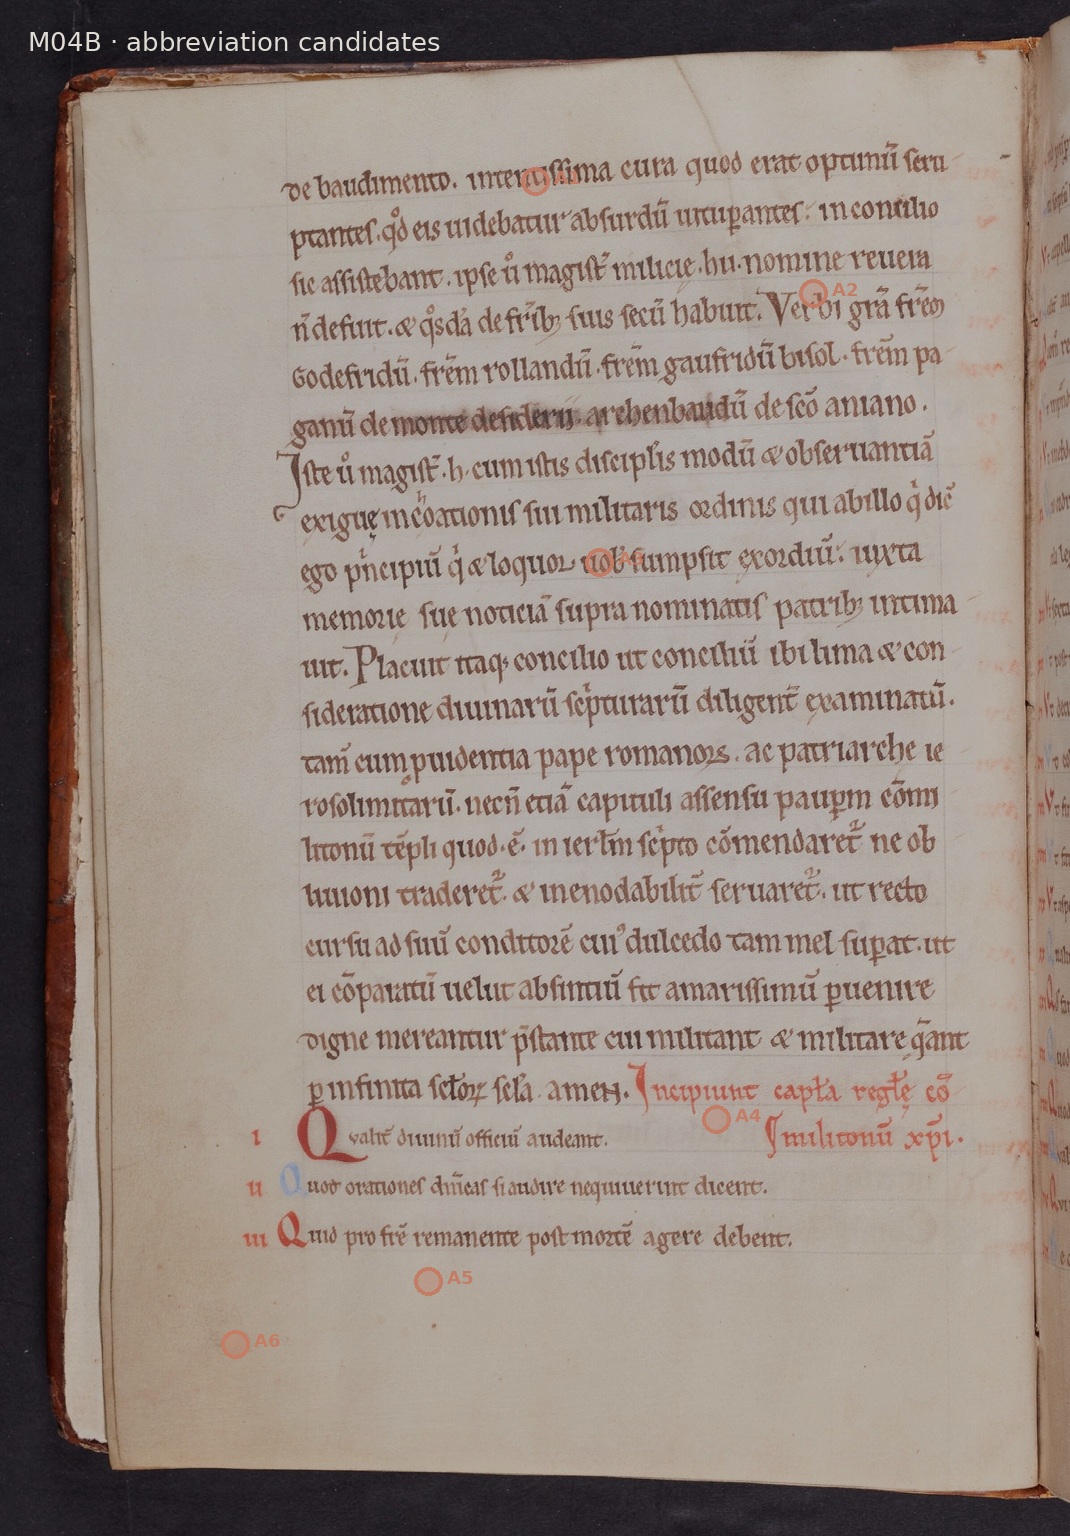 M04B · abbreviation candidates
de baudimento. intentissima cura quod erat optimũ scru
ptantes. qd̊ eis uidebatur absurdũ uituꝑantes. in concilio
sic assistebant. ipse ů magist̃ milicie .hu. nomine reuera
ñ defuit. & qͦsdã de fr̃ib; suis secũ habuit. Verbi grã fr̃em
A2
Godefridũ. fr̃em rollandũ. fr̃em gaufridũ bisol. fr̃em pa
ganũ de monte desiderii. archenbaudũ de scõ aniano.
Iste ů magist̃ .h. cum istis discipl̃is modũ & obseruantiã
exiguę incoationis sui militaris ordinis qui ab illo q̇ dic̃
ego pͥncipiũ q̇ & loquor uob̃ sumpsit exordiũ. iuxta
memorie suę noticiã supra nominatis patrib; intima
uit. Placuit itaq; concilio ut consiliũ ibi lima & con
sideratione diuinarũ scͥpturarũ diligent̃ examinatũ.
tam̃ cum ꝓuidentia pape romanoꝝ. ac patriarche ie
rosolimitarũ. necñ etiã capituli assensu pauꝑum cõmi
litonũ tẽpli quod .ẽ. in ierl̃m scͥpto cõmendaret̃ ne ob
liuioni traderet̃. & inenodabilit̃ seruaret̃. ut recto
cursu ad suũ conditorẽ cuiꝰ dulcedo tam mel suꝑat. ut
ei cõparatũ uelut absintiũ sit amarissimũ ꝑuenire
digne mereantur p̃stante cui militant & militare q̃ant
ꝑ infinita scl̃oꝝ scl̃a. amen. Incipiunt capl̃a regl̃ę cõ
A4
militonũ xp̃i.
i Qvalit̃ diuinũ officiũ audeant.
ii Quot orationes dñicas si audire nequiuerint dicent.
iii Quid pro fr̃e remanente post mortẽ agere debent.
A5
A6